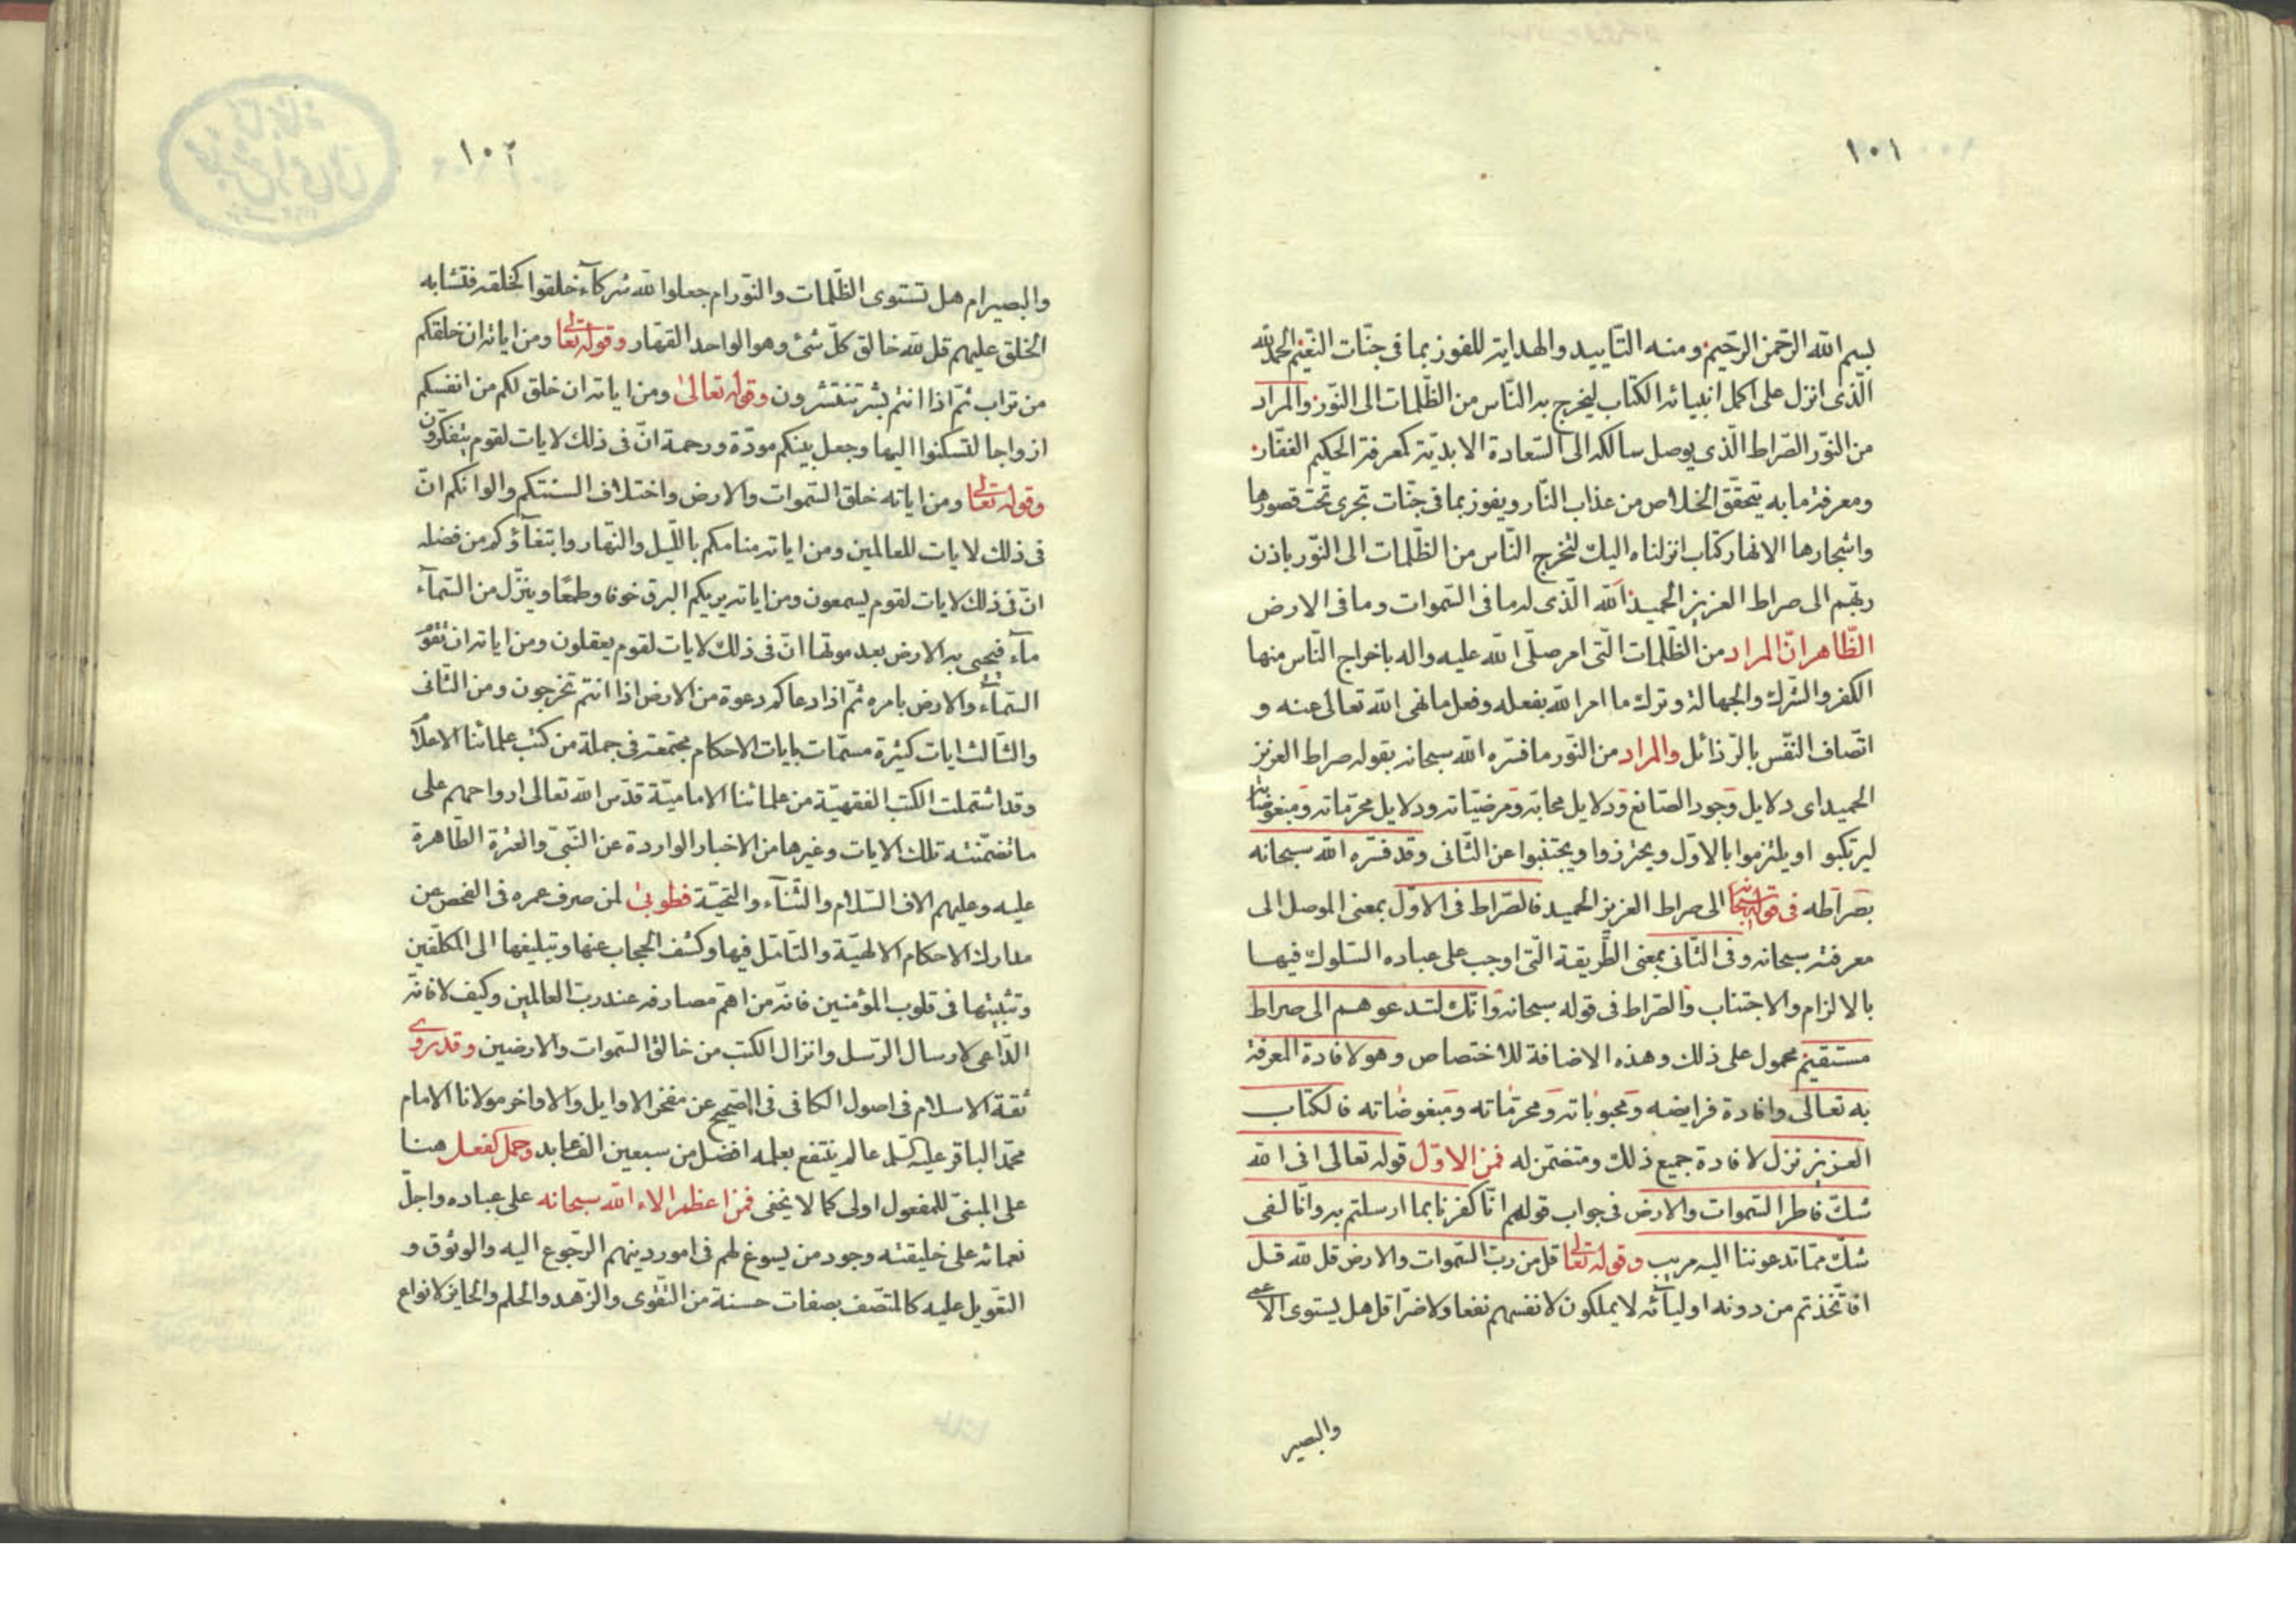 ١٠١
بسم الله الرحمن الرحيم ومنه التأييد والهداية للفوز بما فى جنات النعيم الحمد لله
الّذى انزل على اكمل انبيائه الكتاب ليخرج به النّاس من الظّلمات الى النّور والمراد
من النّور الصّراط الّذى يوصل سالكه الى السّعادة الابديّة كمعرفة الحكيم الغفّار
ومعرفة ما به يتحقّق الخلاص من عذاب النّار ويفوز بما فى جنّات تجرى تحت قصورها
واشجارها الانهار كتاب انزلناه اليك لتخرج النّاس من الظّلمات الى النّور باذن
ربّهم الى صراط العزيز الحميد الله الّذى له ما فى السّموات وما فى الارض
الظّاهر انّ المراد من الظّلمات الّتى امر صلّى الله عليه واله باخراج النّاس منها
الكفر والشّرك والجهالة وترك ما امر الله بفعله وفعل ما نهى الله تعالى عنه و
اتّصاف النّفس بالرّذائل والمراد من النّور ما فسّره الله سبحانه بقوله صراط العزيز
الحميد اى دلايل وجود الصّانع ودلايل محابّه ومرضيّاته ودلايل محرّماته ومبغوضاته
ليرتكبو او يلتزموا بالاوّل ويحترزوا ويجتنبوا عن الثّانى وقد فسّره الله سبحانه
بصراطه فى قوله سبحانه الى صراط العزيز الحميد فالصّراط فى الاوّل بمعنى الموصل الى
معرفته سبحانه وفى الثّانى بمعنى الطّريقة الّتى اوجب على عباده السّلوك فيها
بالالزام والاجتناب والصّراط فى قوله سبحانه وانّك لتدعوهم الى صراط
مستقيم محمول على ذلك وهذه الاضافة للاختصاص وهو لافادة المعرفة
به تعالى وافادة فرايضه ومحبوباته ومحرّماته ومبغوضاته فالكتاب
العزيز نزل لافادة جميع ذلك ومتضمّن له فمن الاوّل قوله تعالى افى الله
شكّ فاطر السّموات والارض فى جواب قولهم انّا كفرنا بما ارسلتم به وانّا لفى
شكّ ممّا تدعوننا اليه مريب وقوله تعالى قل من ربّ السّموات والارض قل لله قل
افاتّخذتم من دونه اوليائه لا يملكون لانفسهم نفعا ولا ضرّا قل هل يستوى الاعمى
والبصير
١٠٢
والبصير ام هل تستوى الظّلمات والنّور ام جعلوا لله شركآء خلقوا كخلقه فتشابه
الخلق عليهم قل لله خالق كلّ شئ وهو الواحد القهّار وقوله تعالى ومن اياته ان خلقكم
من تراب ثمّ اذا انتم بشر تنتشرون وقوله تعالى ومن اياته ان خلق لكم من انفسكم
ازواجا لتسكنوا اليها وجعل بينكم مودّة ورحمة انّ فى ذلك لايات لقوم يتفكّرون
وقوله تعالى ومن اياته خلق السّموات والارض واختلاف السنتكم والوانكم انّ
فى ذلك لايات للعالمين ومن اياته منامكم باللّيل والنّهار وابتغآؤكم من فضله
انّ فى ذلك لايات لقوم يسمعون ومن اياته يريكم البرق خوفا وطمعًا وينزّل من السّمآء
مآء فيحيى به الارض بعد موتها انّ فى ذلك لايات لقوم يعقلون ومن اياته ان تقوم
السّمآء والارض بامره ثمّ اذا دعاكم دعوة من الارض اذا انتم تخرجون ومن الثّانى
والثّالث ايات كثيرة مسمّات بايات الاحكام مجتمعة فى جملة من كتب علمائنا الاعلام
وقد اشتملت الكتب الفقهيّة من علمائنا الاماميّة قدّس الله تعالى ارواحهم على
ما تضمّنته تلك الايات وغيرها من الاخبار الواردة عن النّبىّ والعترة الطّاهرة
عليه وعليهم الاف السّلام والثّنآء والتحيّة فطوبى لمن صرف عمره فى الفحص عن
مدارك الاحكام الالهيّة والتّامّل فيها وكشف الحجاب عنها وتبليغها الى المكلّفين
وتثبيتها فى قلوب المؤمنين فانّه من اهمّ مصارفه عند ربّ العالمين وكيف لا فانّه
الدّاعى لارسال الرّسل وانزال الكتب من خالق السّموات والارضين وقد روى
ثقة الاسلام فى اصول الكافى فى الصّحيح عن مفخر الاوايل والاواخر مولانا الامام
محمّد الباقر عليه السلم عالم ينتفع بعلمه افضل من سبعين الف عابد وحمل كفعل هنا
على المبنىّ للمفعول اولى كما لا يخفى فمن اعظم الاء الله سبحانه على عباده واجلّ
نعمائه على خليقته وجود من يسوغ لهم فى امور دينهم الرّجوع اليه والوثوق و
التّعويل عليه كالمتّصف بصفات حسنة من التّقوى والزّهد والحلم والحايز لانواع